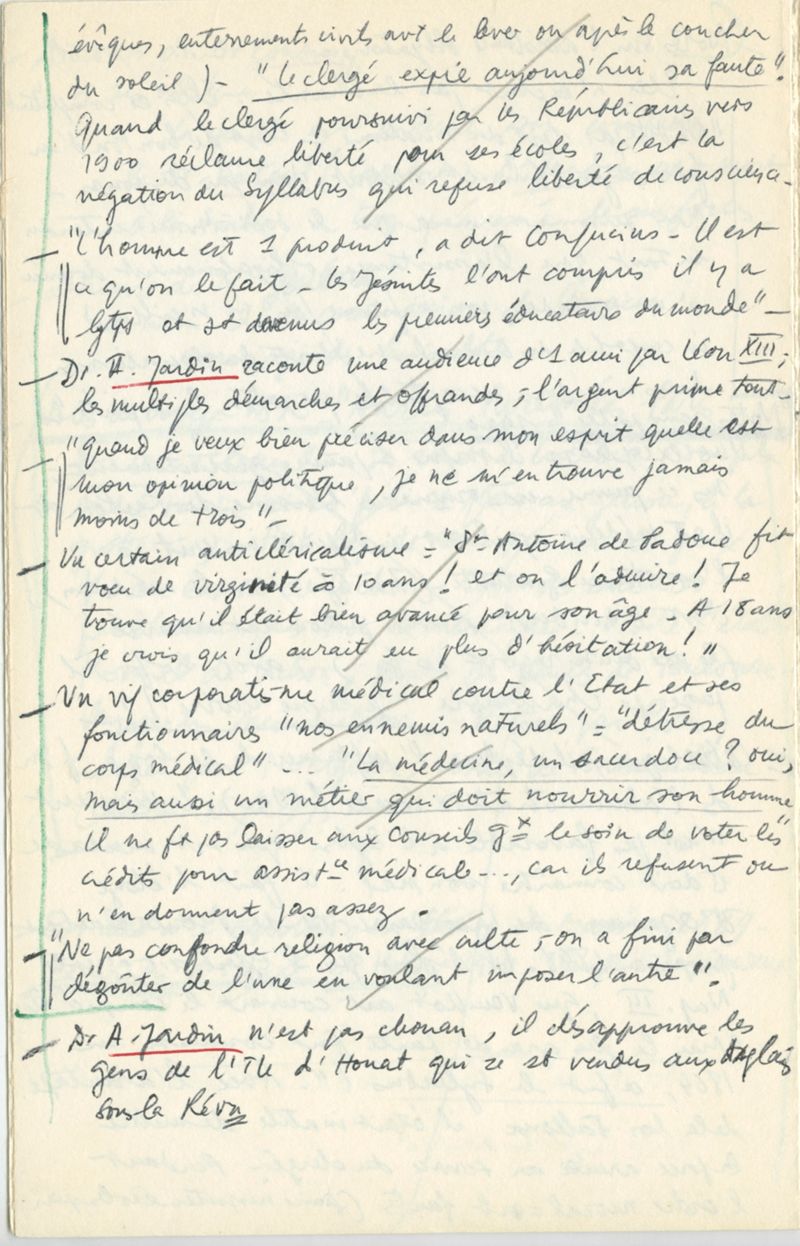 évêques, enterrements civils avt le lever ou après le coucher
du soleil) - "le clergé expie aujourd'hui sa faute".
Quand le clergé poursuivi par les Républicains vers
1900 réclame liberté pour ses écoles, c'est la
négation du Syllabus qui refuse liberté de conscience -
- "L'homme est 1 produit, a dit Confucius - Il est
ce qu'on le fait - les Jésuites l'ont compris il y a
lgtps et st devenus les premiers éducateurs du monde" -
- Dr. A. Jardin raconte une audience d'1 ami par Léon XIII ;
les multiples démarches et offrandes ; l'argent prime tout -
- "Quand je veux bien préciser dans mon esprit quelle est
mon opinion politique, je ne m'en trouve jamais
moins de trois" -
- Un certain anticléricalisme = "St Antoine de Padoue fit
voeu de virginité à 10 ans ! et on l'admire ! Je
trouve qu'il était bien avancé pour son âge - A 18 ans
je crois qu'il aurait eu plus d'hésitation ! "
- Un vif corporatisme médical contre l'Etat et ses
fonctionnaires "nos ennemis naturels" = "détresse du
corps médical" -... "La médecine, un sacerdoce ? oui,
mais aussi un métier qui doit nourrir son homme"
Il ne ft pas laisser aux Conseils gx le soin de voter les
crédits pour assistce médicale..., car ils refusent ou
n'en donnent pas assez.
- "Ne pas confondre religion avec culte ; on a fini par
dégoûter de l'une en voulant imposer l'autre".
- Dr A. Jardin n'est pas chouan, il désapprouve les
gens de l'Ile d'Houat qui se st vendus aux Anglais
sous la Révn